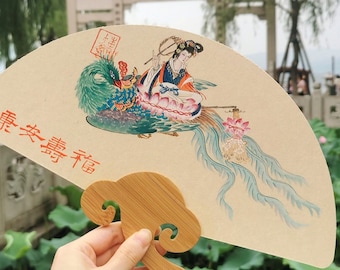 福壽安康